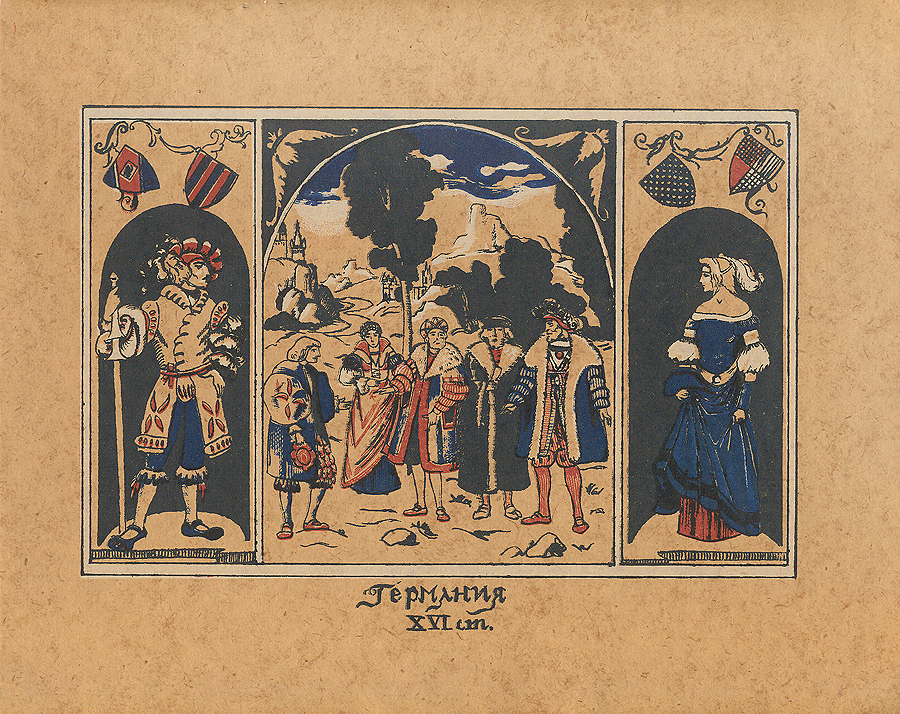 Германия
XVI ст.